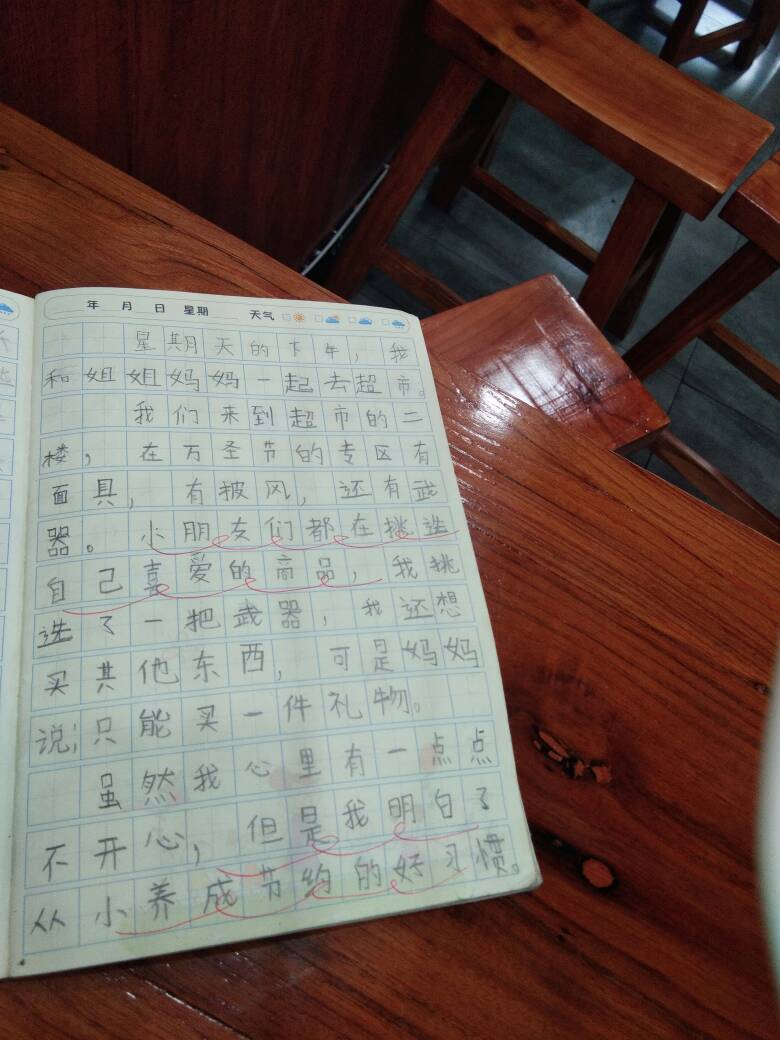 年 月 日 星期 天气
星期天的下午，我
和姐姐妈妈一起去超市。
我们来到超市的二
楼，在万圣节的专区有
面具，有披风，还有武
器。小朋友们都在挑选
自己喜爱的商品，我挑
选了一把武器，我还想
买其他东西，可是妈妈
说：只能买一件礼物。
虽然我心里有一点点
不开心，但是我明白了
从小养成节约的好习惯。